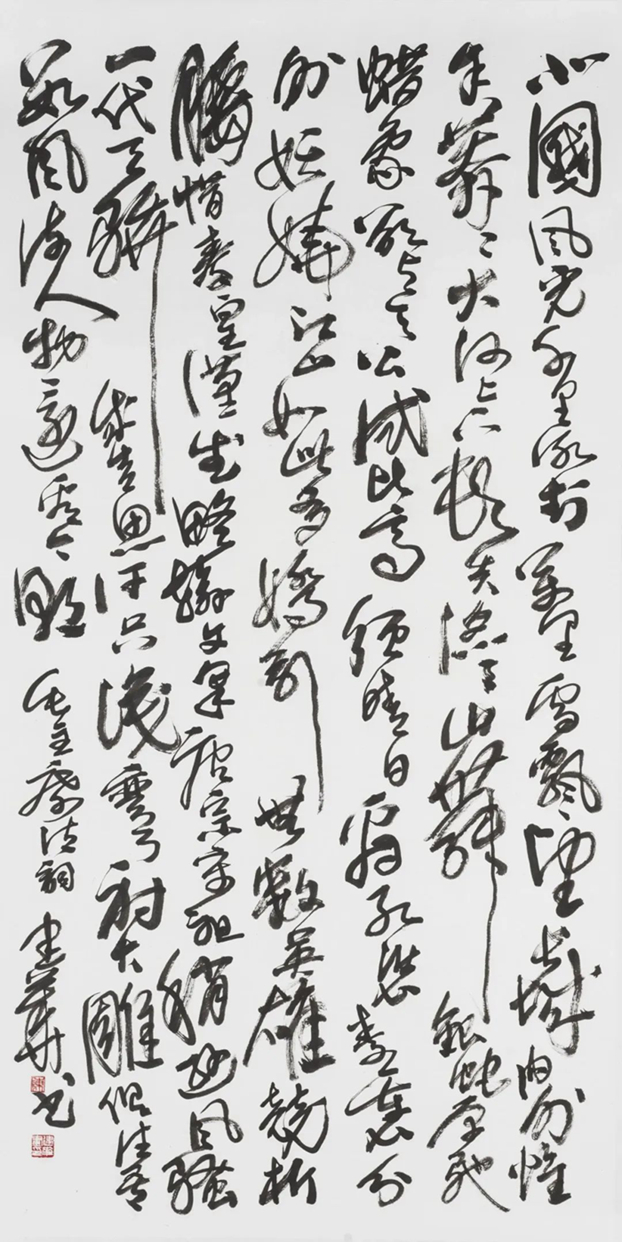 北國風光千里冰封萬里雪飄望長城内外惟
余莽莽大河上下頓失滔滔山舞銀蛇原馳
蜡象欲与天公試比高須晴日看紅裝素裹分
外妖嬈江山如此多嬌引無數英雄競折
腰惜秦皇漢武略輸文采唐宗宋祖稍遜風騷
一代天驕成吉思汗只識彎弓射大雕俱往矣
數風流人物還看今朝 毛主席詩詞 華书